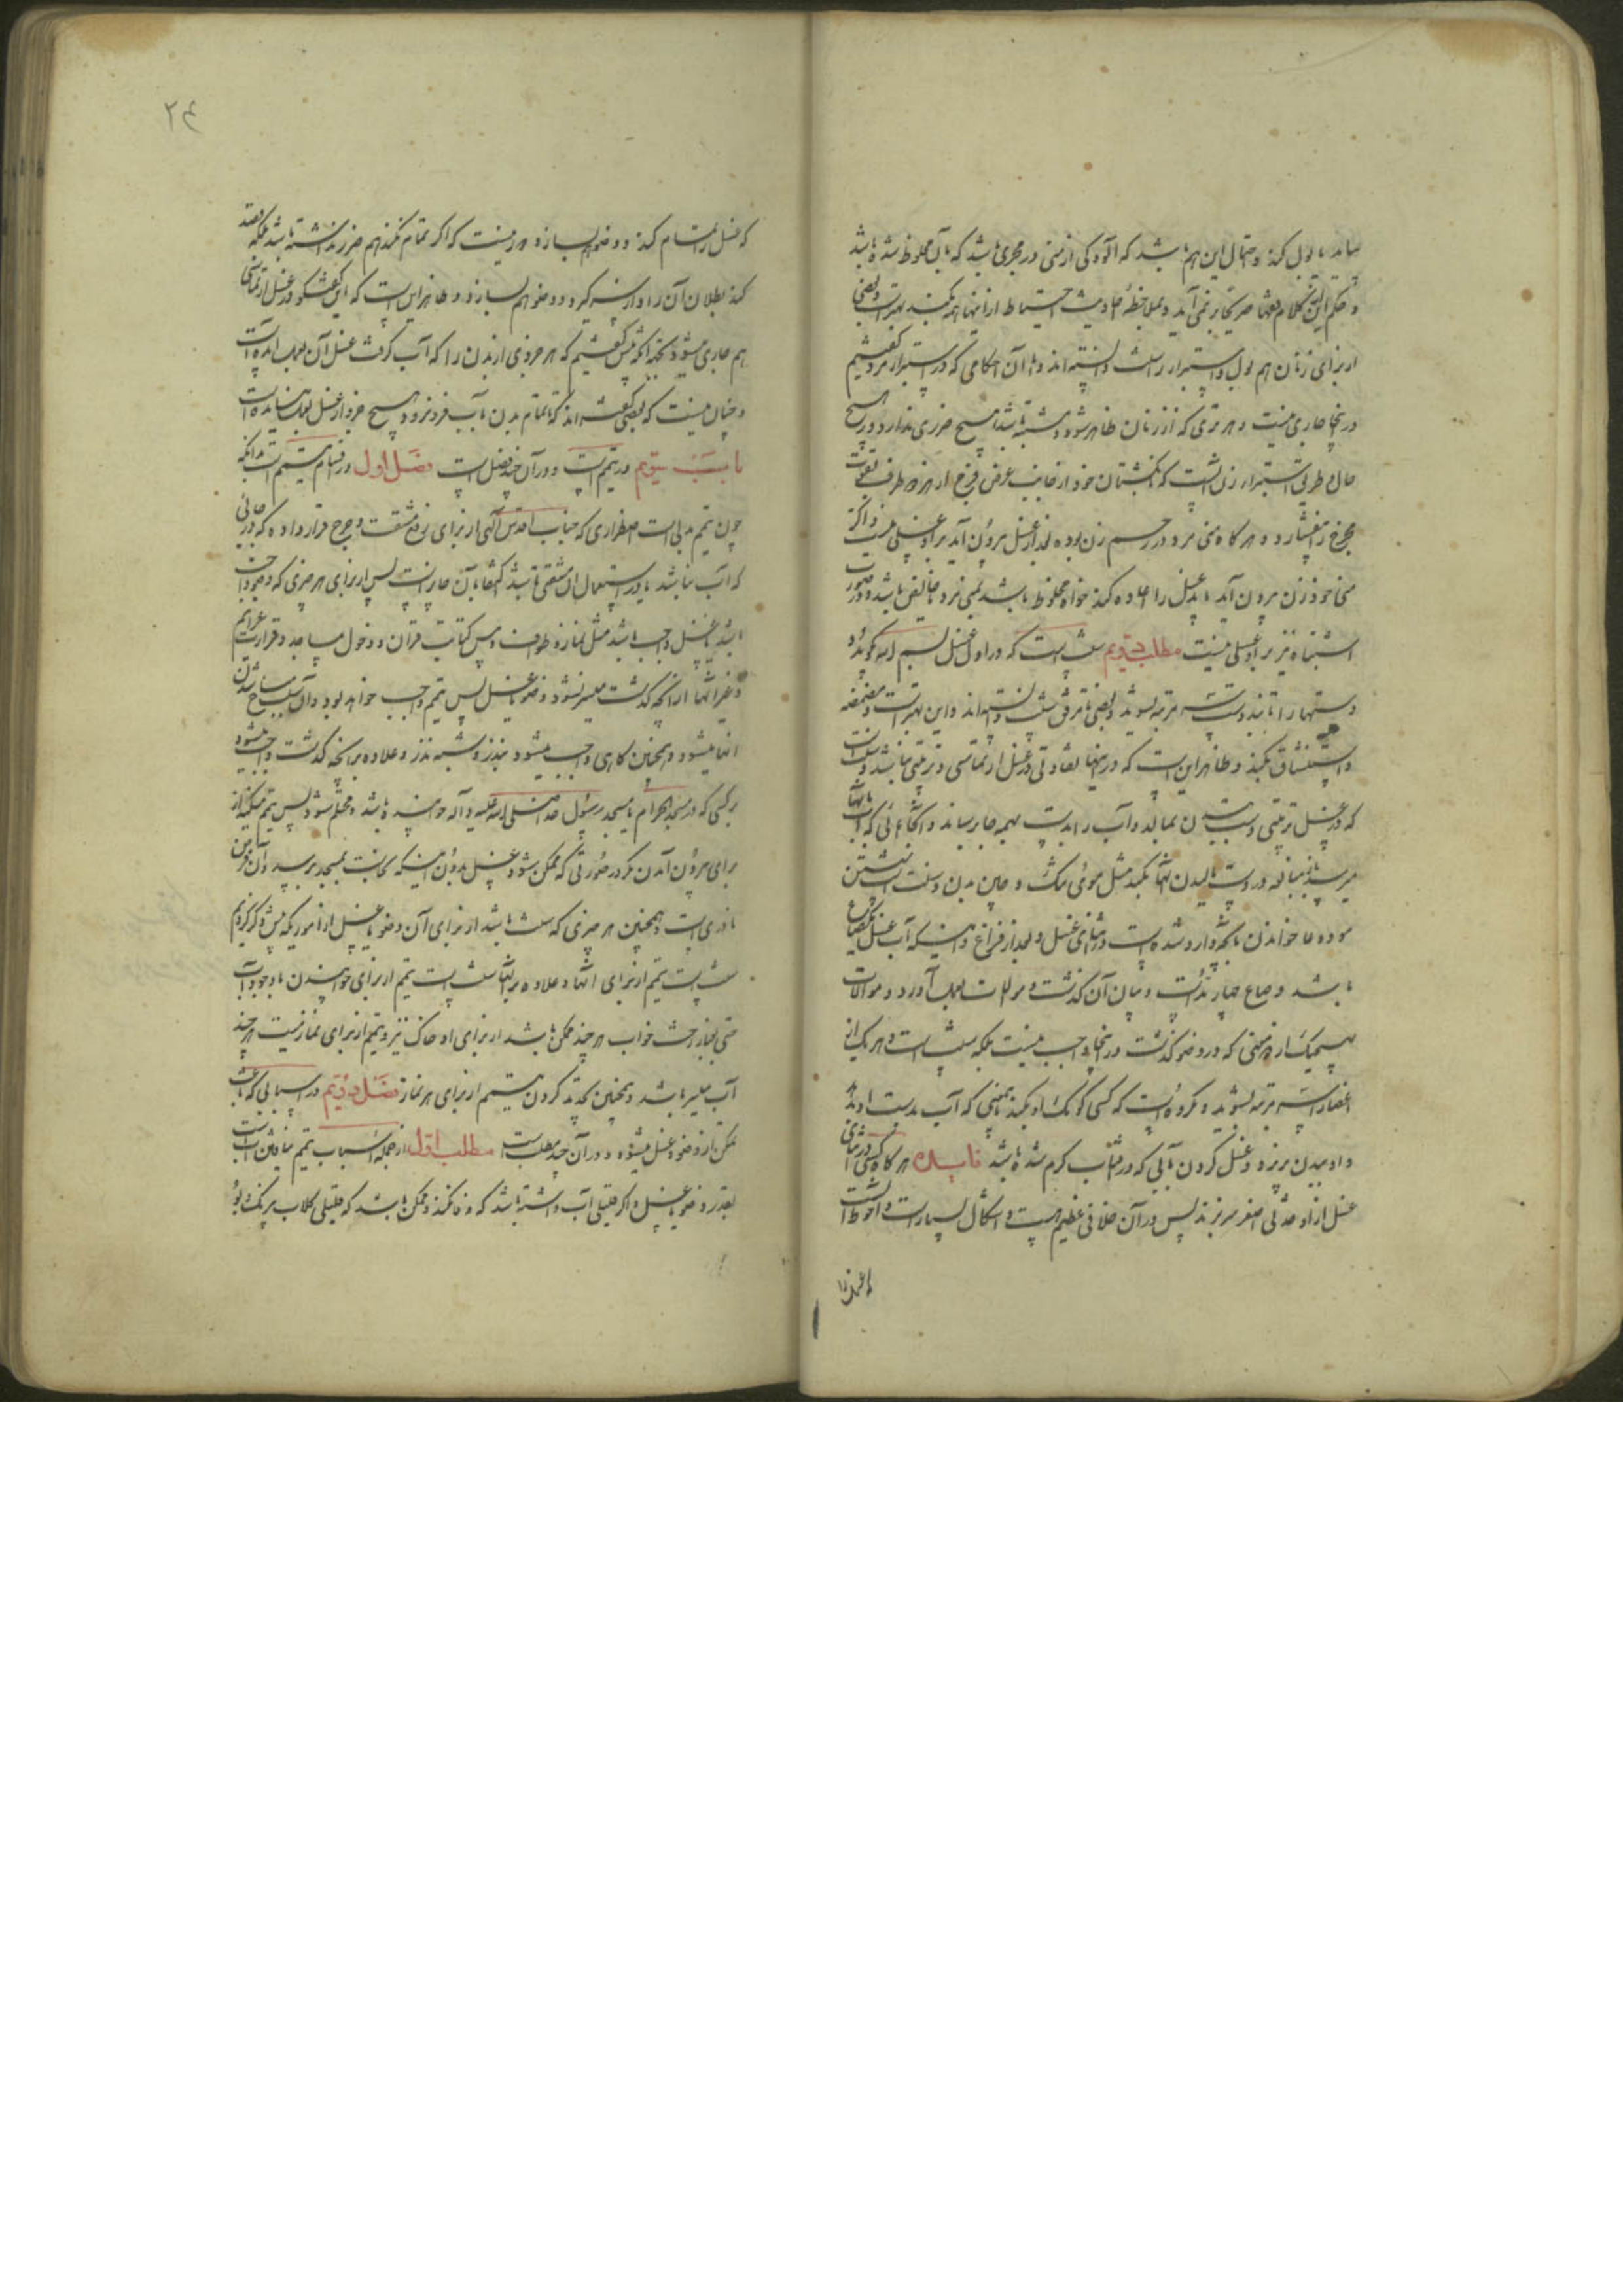 بیاید یا بول کند و احتمال این هم باشد که آلودگی از منی در مجری باشد که با آن مخلوط شده باشد
و حکم این از کلام فقها صریحا بر نمی آید و بملاحظهٔ احادیث احتیاط از اینها همه بکنند بهتر است و بعضی
از برای زنان هم بول و استبراء را سنت دانسته اند و آن احکامی که در استبراء مرد گفتیم
در اینجا جاری نیست و هر تری که از زنان ظاهر شود و مشتبه باشد هیچ ضرری ندارد در هیچ
حال و طریق استبراء زن آنست که بانگشتان خود از جانب عرض فرج از هر دو طرف بقوت
فرج را بفشارد و هر گاه منی مرد در رحم زن بوده بعد از غسل بیرون آید بر او غسلی نیست و اگر
منی خود زن بیرون آید باید غسل را اعاده کند خواه مخلوط باشد بمنی مرد یا خالص باشد و در صورت
اشتباه نیز بر او غسلی نیست مطلب دویم سنت است که در اول غسل بسم الله بگوید و
دستها را تا بند دست سه مرتبه بشوید و بعضی تا مرفق سنت دانسته اند و این بهتر است و مضمضه
و استنشاق بکند و ظاهر این است که در اینها تفاوتی در غسل ارتماسی و ترتیبی نباشد و سنت است
که در غسل ترتیبی دست بر بدن بمالد و آب را بدست بهمه جا برساند و آنجاهائی که آب بآنها
میرسد مبالغه در دست مالیدن آنها بکند مثل موی تنک و چین بدن و سنت است شستن
مو و دعا خواندن بآنچه وارد شده است در اثنای غسل و بعد از فراغ و اینکه آب غسل یکصاع
باشد و صاع چهار مد است و بیان آن گذشت و موالات بعمل آورد و موالات
بهیچیک از دو معنی که در وضو گذشت در اینجا واجب نیست بلکه سنت است و هر یک از
اعضا را سه مرتبه بشوید و مکروه است که کسی کومک او بکند باین معنی که آب بدست او بدهد
و او ببدن بریزد و غسل کردن بآبی که در آفتاب گرم شده باشد فایده هر گاه کسی در اثنای
غسل از او حدثی اصغر سر بزند پس در آن خلافی عظیم هست و اشکال بسیار است و احوط آنست
۲۴
که غسل را تمام کند و وضو هم بسازد و دور نیست که اگر تمام نکند هم ضرر نداشته باشد بلکه قصد
کند بطلان آن را و از سر گیرد و وضو هم بسازد و ظاهر این است که این گفتگو در غسل ارتماسی
هم جاری میشود بجهة آنکه پیش گفتیم که هر جزوی از بدن را که آب گرفت غسل آن بعمل آمده است
و چنان نیست که بعضی گفته اند که تا تمام بدن بآب فرو نرود هیچ جزو از غسل بعمل نیامده است
باب سیوم در تیمم است و در آن چند فصل است فصل اول در اقسام تیمم است بدانکه
چون تیمم بدلی است اضطراری که جناب اقدس الهی از برای رفع مشقت و حرج قرار داده که در جائی
که آب نباشد یا در استعمال آن مشقتی باشد اکتفا بآن جایز است پس از برای هر چیزی که وضو واجب
باشد یا غسل واجب باشد مثل نماز و طواف و مس کتابت قرآن و دخول مساجد و قرائت عزایم
و غیر آنها از آنچه گذشت میسر نشود وضو یا غسل پس تیمم واجب خواهد بود و آن سبب مباح شدن
آنها میشود و همچنین گاهی واجب میشود بنذر و شبه نذر و علاوه بر آنچه گذشت واجب میشود
بر کسی که در مسجد الحرام یا مسجد رسول خدا صلی الله علیه و آله خوابیده باشد و محتلم شود پس تیمم میکند از
برای بیرون آمدن مگر در صورتی که ممکن شود غسل بدون اینکه نجاست بمسجد برسد و آن فرض
نادری است و همچنین هر چیزی که سنت باشد از برای آن وضو یا غسل از اموریکه پیش ذکر کردیم
سنت است تیمم از برای آنها و علاوه بر آنها سنت است تیمم از برای خوابیدن با وجود آب
حتی بغبار رخت خواب هر چند ممکن باشد از برای او خاک نیز و تیمم از برای نماز میت هر چند
آب میسر باشد و همچنین تجدید کردن تیمم از برای هر نماز فصل دویم در اسبابی که باعث
تمکن از وضو و غسل میشود و در آن چند مطلب است مطلب اول از جمله اسباب تیمم نیافتن آب است
بقدر وضو یا غسل و اگر قلیلی آب داشته باشد که وفا نکند و ممکن باشد که قلیلی گلاب بیرنگ و بو